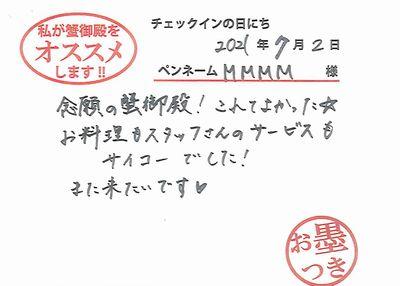 私が蟹御殿を
オススメ
します!!
チェックインの日にち
2021年7月2日
ペンネーム MMMM 様
念願の蟹御殿! これてよかった☆
お料理もスタッフさんのサービスも
サイコーでした!
また来たいです♥
お墨
つき